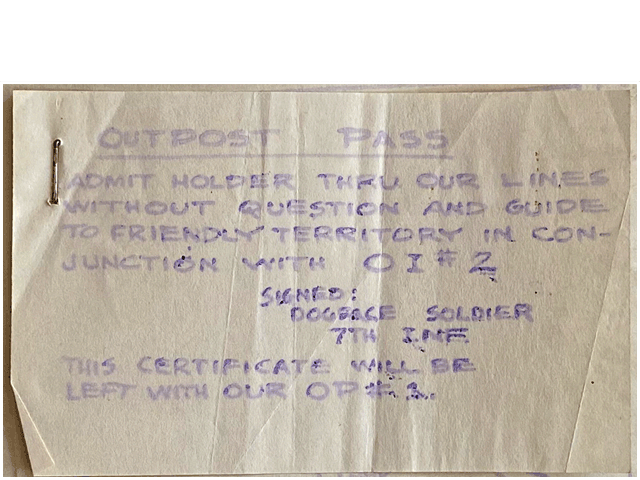 OUTPOST PASS
ADMIT HOLDER THRU OUR LINES
WITHOUT QUESTION AND GUIDE
TO FRIENDLY TERRITORY IN CON-
JUNCTION WITH OI #2
SIGNED:
DOGFACE SOLDIER
7TH INF
THIS CERTIFICATE WILL BE
LEFT WITH OUR OP #